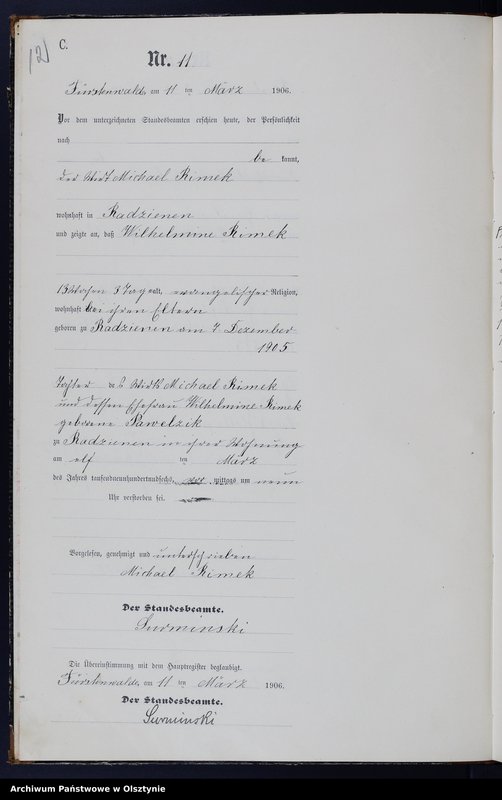 12
C.
Nr. 11
Fürstenwalde am 11 ten März 1906.
Vor dem unterzeichneten Standesbeamten erschien heute, der Persönlichkeit
nach
be kannt,
der Wirt Michael Kimek
wohnhaft in Radzienen
und zeigte an, daß Wilhelmine Kimek
13 Wochen 3 Tag alt, evangelischer Religion,
wohnhaft bei ihren Eltern
geboren zu Radzienen am 7 Dezember
1905
Tochter des Wirts Michael Kimek
und dessen Ehefrau Wilhelmine Kimek
geborene Pawelzik
zu Radzienen in ihrer Wohnung
am elf ten März
des Jahres tausendneunhundertundsechs, vor mittags um neun
Uhr verstorben sei.
Vorgelesen, genehmigt und unterschrieben
Michael Kimek
Der Standesbeamte.
Surminski
Die Übereinstimmung mit dem Hauptregister beglaubigt.
Fürstenwalde am 11 ten März 1906.
Der Standesbeamte.
Surminski
Archiwum Państwowe w Olsztynie